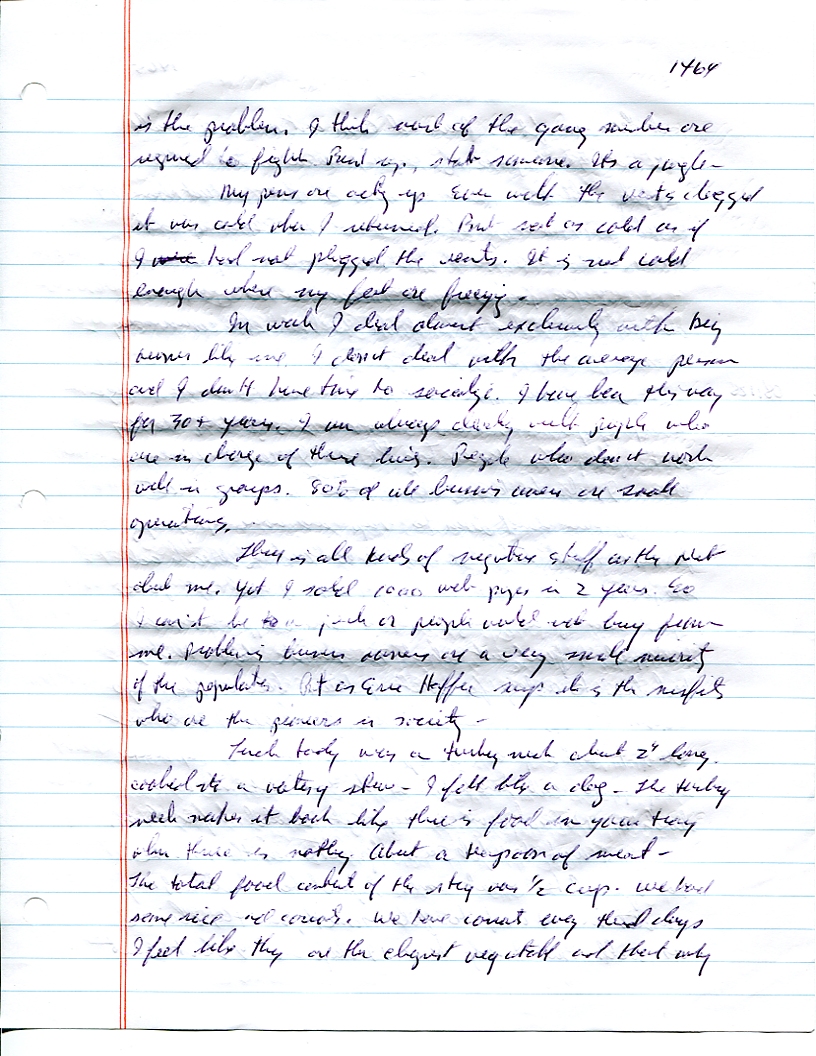 1464
is the problem. I think most of the gang members are
required to fight. Paid up, stab someone. Its a jungle -
My pens are acting up. Even with the vents clogged
it was cold when I returned. But not as cold as if
I had not plugged the vents. It is not cold
enough where my feet are freezing.
In work I deal almost exclusively with
owners like me. I don't deal with the average person
and I don't have time to socialize. I have been this way
for 30+ years. I am always dealing with people who
are in charge of their lives. People who don't work
well in groups. 80% of all business owners are small
operations.
There is all kinds of negative stuff on the Net
about me. Yet I sold 1000 web pages in 2 years. So
I can't be a jerk or people would not buy from
me. Probably business owners are a very small minority
of the population. But as Eric Hoffer says it is the misfits
who are the pioneers in society -
Lunch today was a turkey neck about 2" long
cooked in a watery stew - I felt like a dog - The turkey
neck makes it look like there is food on your tray
when there is nothing. About a teaspoon of meat -
The total food content of the stew was 1/2 cup. We had
some rice and carrots. We have carrots every third day
I feel like they are the cheapest vegetable and that why